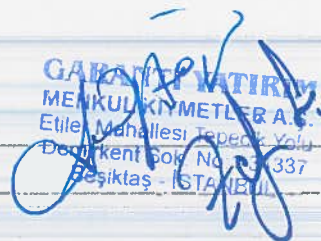 GARANTİ YATIRIM
MENKUL KIYMETLER A.Ş.
Etiler Mahallesi Tepecik Yolu
Demirkent Sok. No 34337
Beşiktaş - İSTANBUL